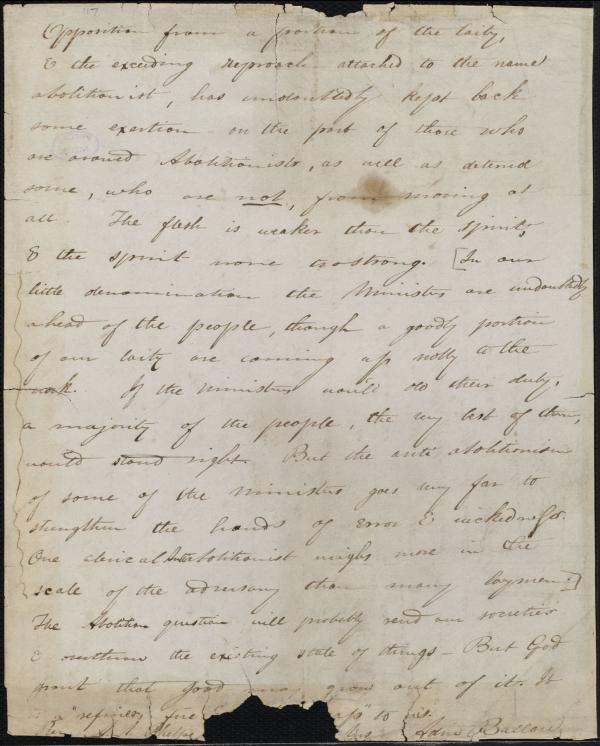 Opposition from a portion of the laity,
& the exceeding reproach attached to the name
abolitionist, has undoubtedly kept back
some exertion on the part of those who
are avowed Abolitionists, as well as deterred
some, who are not, from moving at
all. The flesh is weaker than the spirit,
& the spirit none too strong. [In our
little denomination the Ministers are undoubtedly
ahead of the people, though a goodly portion
of our laity are coming up nobly to the
work. If the ministers would do their duty,
a majority of the people, the very best of them,
would stand right. But the anti abolitionism
of some of the ministers goes very far to
strengthen the hands of error & wickedness.
One clerical Antiabolitionist weighs more in the
scale of the adversary than many laymen.]
The Abolition question will probably rend our societies
& overthrow the existing state of things - But God
grant that good may grow out of it. It
is a "refiner's fire to us.
Adin Ballou